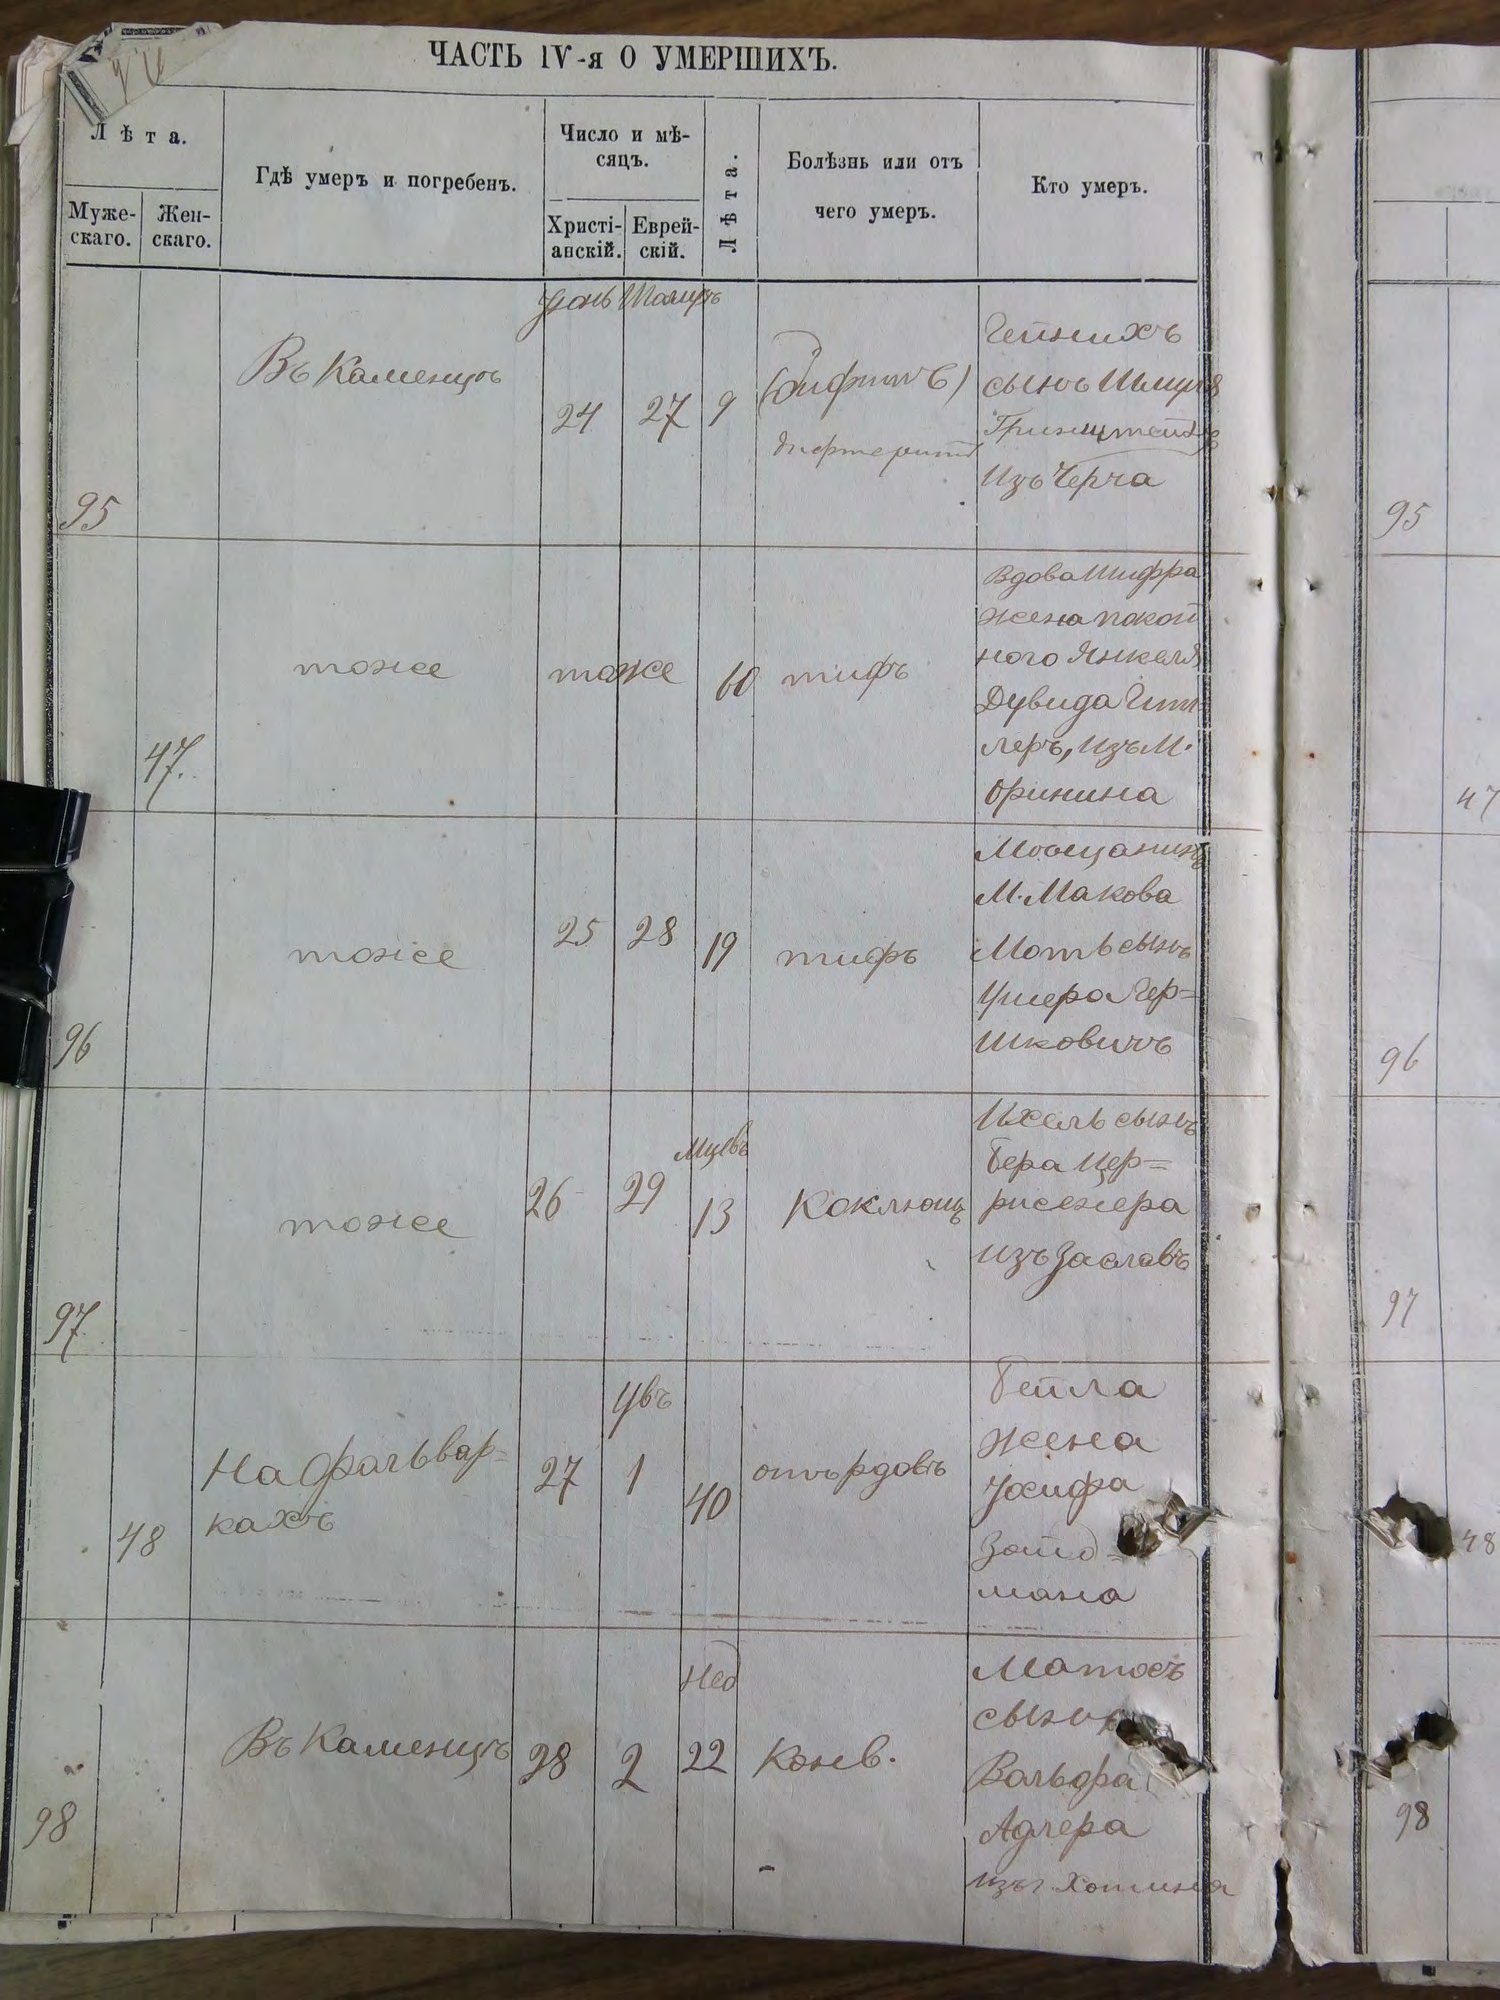 ЧАСТЬ IV-я О УМЕРШИХЪ.
Лѣта.
Муже-
скаго.
Жен-
скаго.
Гдѣ умеръ и погребенъ.
Число и мѣ-
сяцъ.
Христі-
анскій.
Еврей-
скій.
Лѣта.
Болѣзнь или отъ
чего умеръ.
Кто умеръ.
95
Въ Каменцѣ
Іюнь
24
27
9
(дифтитъ)
дифтеритъ
сынъ Шмуля
Гринштейнъ
изъ Черча
95
47.
тоже
тоже
60
тифъ
Вдова Шифра
жена покой
ного Янкеля
Дувида Гит
леръ, изъ м.
Оринина
47
96
тоже
25
28
19
тифъ
Мѣщанинъ
м. Макова
Моть сынъ
Ушера Гер=
шковичъ
96
97
тоже
26
29
мцевъ
13
Коклюшъ
Ихель сынъ
Бера
изъ Заславъ
97
48
На фольвар=
кахъ
27
1
40
отъ родовъ
Бейла
жена
Іосифа
Зайд=
мана
48
98
Въ Каменцѣ
28
2
Нед
22
Конв.
сынъ
Вольфа
Адлера
изъ г. Хотина
98